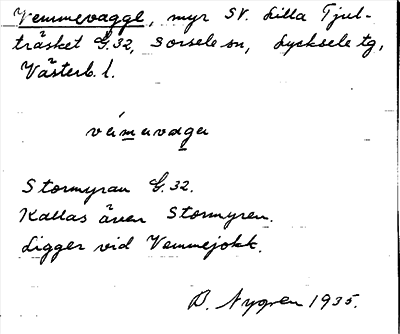 Vemmevagge, myr SV. Lilla Tjul-
träsket G.32, Sorsele sn, Lycksele tg,
Västerb. l.
vámavaga
Stormyran G.32.
Kallas även Stormyren.
Ligger vid Vemmejokk.
B. Nygren 1935.